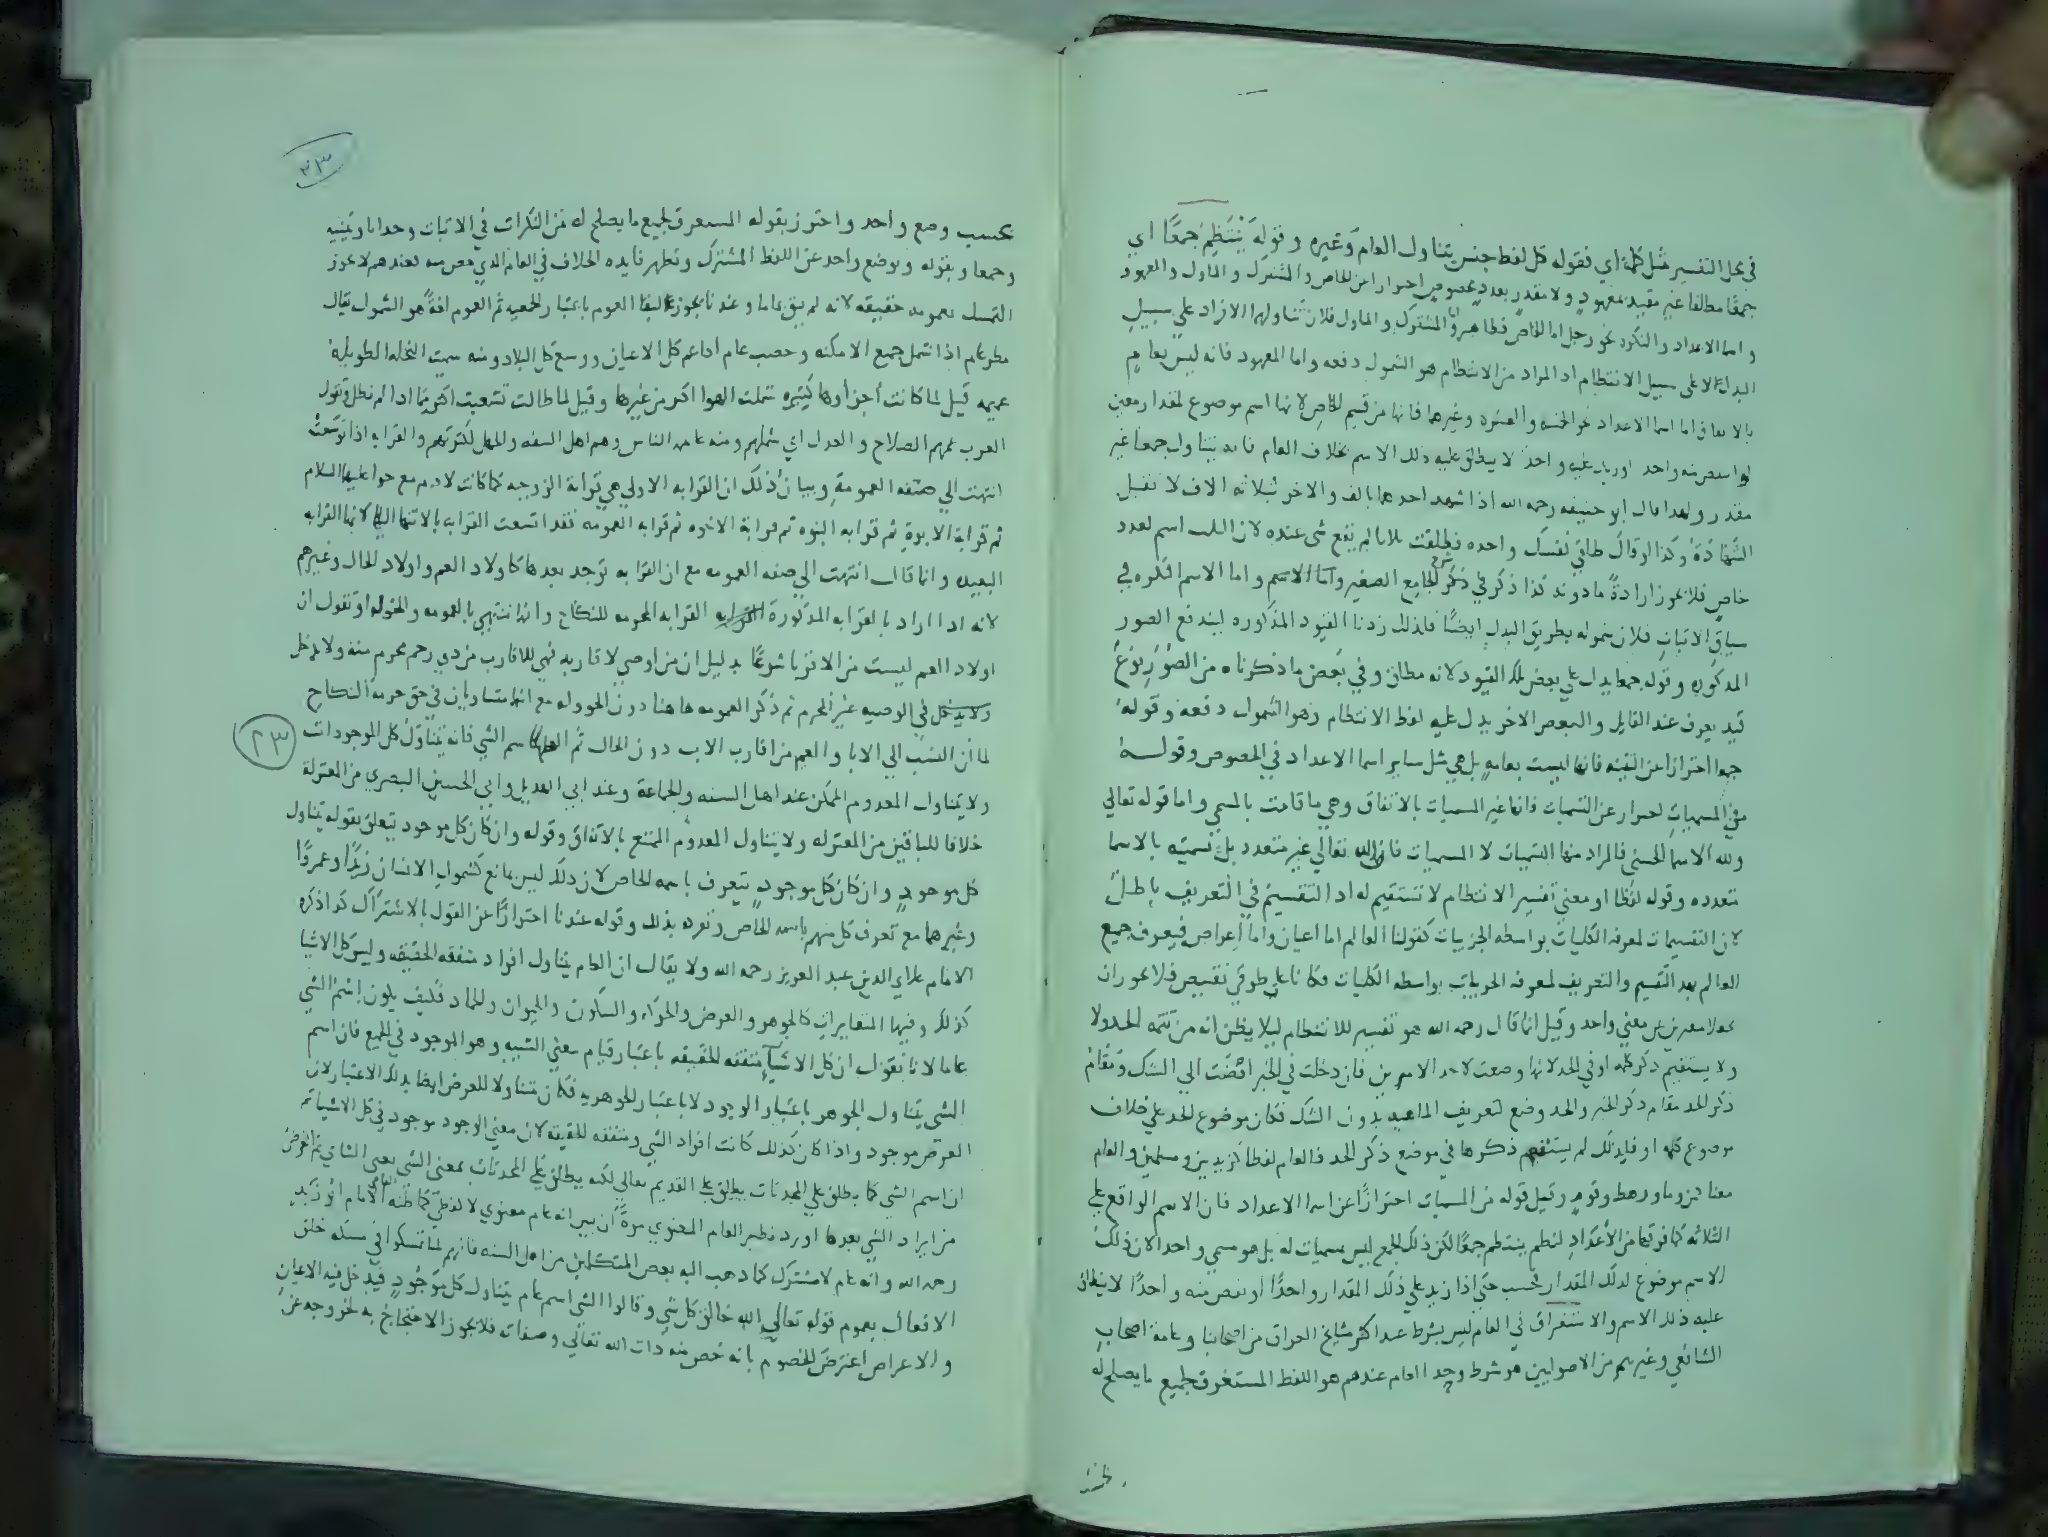 في محل التفسير مثل كلمة اي فقوله كل لفظ جنس يتناول العام وغيره وقوله ينتظم جمعًا اي
جمعًا مطلقا غير مقيد بمعهود ولا مقدر بعدد مخصوص احترازا عن الخاص والمشترك والماول والمعهود
واسما الاعداد والنكره نحو رجل اما الخاص فظاهر واما المشترك والماول فلان تناولهما الافراد على سبيل
البدل لا على سبيل الانتظام اذ المراد من الانتظام هو الشمول دفعه واما المعهود فانه ليس بعام
بالاتفاق اما اسما الاعداد نحو الخمسه والعشره وغيرها فانها من قسم الخاص لانها اسم موضوع لمقدار معين
لو انتقص منه واحد او زيد عليه واحد لا يطلق عليه ذلك الاسم بخلاف العام فانه يتناول جمعا غير
مقدر ولهذا قال ابو حنيفه رحمه الله اذا شهد احدهما بالف والاخر بثلاثه الاف لا تقبل
الشهادة وكذا لو قال طلقي نفسك واحده فطلقت ثلاثا لم يقع شي عنده لان الثلث اسم لعدد
خاص فلا يجوز ارادة مادونه كذا ذكر في شرح الجامع الصغير واما الاسم النكره في
سياق الاثبات فلان شموله بطريق البدل ايضًا فلذلك زدنا القيود المذكوره ليندفع الصور
المذكوره وقوله جمعا يدل على بعض تلك القيود لانه مطلق وفي بعض ما ذكرناه من الصور نوع
قيد يعرف عند القايل والبعض الاخر يدل عليه لفظ الانتظام وهو الشمول دفعه وقوله
جمعا احترازا عن التثنيه فانها ليست بعامه بل هي مثل ساير اسما الاعداد في الخصوص وقوله
من المسميات احتراز عن التسميات فانها غير المسميات بالاتفاق وهي ما قامت بالمسمي واما قوله تعالي
ولله الاسما الحسنى فالمراد منها التسميات لا المسميات فان الله تعالي غير متعدد بل تسميته بالاسما
متعدده وقوله لفظا او معني تفسير الانتظام لا تستقيم له اذ التقسيم في التعريف باطل
لان التقسيمات لمعرفه الكليات بواسطه الجزييات كقولنا العالم اما اعيان واما اعراض فيعرف جميع
العالم بعد التقسيم والتعريف لمعرفه الجزييات بواسطه الكليات فكانا على طرفي نقيض فلا يجوز ان
يجعلا معرفين عن معني واحد وقيل انما قال رحمه الله هو تفسير للانتظام ليلا يظن انه من تتمه الحد ولا
ولا يستقيم ذكر كلمه او في الحد لانها وضعت لاحد الامرين فان دخلت في الخبر افضت الي الشك ومقام
ذكر الحد مقام ذكر الخبر والحد وضع لتعريف الماهيه بدون الشك فكان موضوع الحد علي خلاف
موضوع كلمه او فلذلك لم يستقم ذكرها في موضع ذكر الحد فالعام لفظا كزيدين ومسلمين والعام
معنا كمن وما ورهط وقوم وقيل قوله من المسميات احترازًا عن اسما الاعداد فان الاسم الواقع على
الثلاثه فما فوقها من الأعداد لنظم ينتظم جمعًا لكن ذلك الجمع ليس بمسميات له بل هو مسمي واحد لان ذلك
الاسم موضوع لذلك المقدار فحسب حتى اذا زيد علي ذلك المقدار واحدًا او نقص منه واحدًا لا ينطلق
عليه ذلك الاسم والاستغراق في العام ليس بشرط عند اكثر مشايخ العراق من اصحابنا وعامه اصحاب
الشافعي وغيرهم من الاصوليين هو شرط وحد العام عندهم هو اللفظ المستغرق لجميع ما يصلح له
٢٣
بحسب وضع واحد واحترز بقوله المستغرق لجميع ما يصلح له من النكرات في الاثبات وحدانا وتثنيه
وجمعا وبقوله وبوضع واحد عن اللفظ المشترك وتظهر فايده الخلاف في العام الذي خص منه فعندهم لا يجوز
التمسك بعمومه حقيقه لانه لم يبق عاما وعندنا يجوز لبقا العموم باعتبار الجمعيه ثم العموم لغةً هو الشمول يقال
مطر عام اذا شمل جميع الامكنه وخصب عام اذا عم كل الاعيان ووسع كل البلاد ومنه سميت النخله الطويله
عميمه قيل لما كانت أجزاوها كثيره شملت الهوا اكثر من غيرها وقيل لما طالت تشعبت اكثر مما اذا لم تطل وتقول
العرب عمهم الصلاح والعدل اي شملهم ومنه عامه الناس وهم اهل السفه والجهل لكثرتهم والقرابه اذا توسعت
انتهت الي صفه العمومة وبيان ذلك ان القرابه الاولي هي قرابة الزوجه كما كانت لادم مع حوا عليهما السلام
ثم قرابة الابوة ثم قرابه البنوه ثم قرابة الاخوه ثم قرابه العمومه فقد اتسعت القرابه بالانتها اليها لانها القرابه
البعيده وانما قال انتهت الي صفه العمومه مع ان القرابه توجد بعدها كاولاد العم واولاد الخال وغيرهم
لانه اذا اراد بالقرابه المذكورة القرابه المحرمه للنكاح وانها تنتهي بالعمومه والخئوله او نقول ان
اولاد العم ليست من الاقربا شرعًا بدليل ان من اوصي لاقاربه فهي للاقارب من ذي رحم محرم منه ولا يدخل
في الوصيه غير المحرم ثم ذكر العمومه هاهنا دون الخووله مع انهما متساويان في حق حرمة النكاح
لما أن النسب الي الابا والعم من اقارب الاب دون الخال ثم اسم الشي فانه يتناول كل الموجودات
٢٣
ولا يتناول المعدوم الممكن عند اهل السنه والجماعة وعند ابي الهذيل وابي الحسين البصري من المعتزلة
خلافا للباقين من المعتزله ولا يتناول المعدوم الممتنع بالاتفاق وقوله وان كان كل موجود يتعلق بقوله يتناول
كل موجود وان كان كل موجود يتعرف باسمه الخاص لان ذلك ليس بمانع كشمول الانسان زيدًا وعمروًا
وغيرهما مع تعرف كل منهم باسمه الخاص وتفرده بذلك وقوله عندنا احترازًا عن القول بالاشتراك كذا ذكره
الامام علاء الدين عبد العزيز رحمه الله ولا يقال ان العام يتناول افراد متفقه الحقيقه وليس كل الاشيا
كذلك وفيها المتغايرات كالجوهر والعرض والحركة والسكون والحيوان والجماد فكيف يكون اسم الشي
عاما لانا نقول ان كل الاشياء متفقه الحقيقه باعتبار قيام معني الشييه وهو الموجود في الجميع فان اسم
الشي يتناول الجوهر باعتبار الوجود لا باعتبار الجوهريه فكان متناولا للعرض ايضا بذلك الاعتبار لان
العرض موجود واذا كان كذلك كانت افراد الشي متفقه الحقيقه لان معني الوجود موجود في كل الاشيا ثم
ان اسم الشي كما يطلق علي المحدثات يطلق علي القديم تعالي لكنه يطلق على المحدثات بمعنى الشي بعني الشاي ثم الغرض
من ايراد الشي بعدها اورد نظير العام المعنوي مرةً أن يبين انه عام معنوي لا لفظي كما ظنه القاضي الامام ابو زيد
رحمه الله وانه عام لا مشترك كما ذهب اليه بعض المتكلمين من اهل السنه فانهم لما تمسكوا في مسئله خلق
الافعال بعموم قوله تعالي الله خالق كل شي وقالوا الشي اسم عام يتناول كل موجود فيدخل فيه الاعيان
والاعراض اعترض الخصوم بانه خص منه ذات الله تعالي وصفاته فلا يجوز الاحتجاج به لخروجه عن